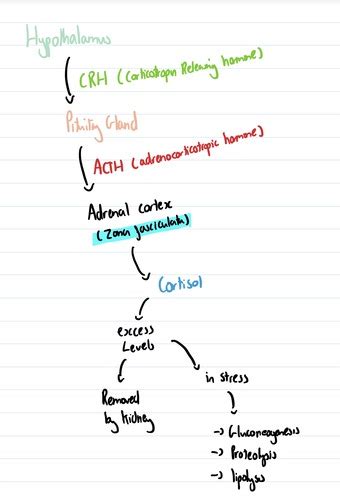 Hypothalamus
CRH (Corticotropin Releasing hormone)
Pituitary Gland
ACTH (adrenocorticotropic hormone)
Adrenal cortex
(Zona fasciculata)
Cortisol
excess
Levels
in stress
Removed
by Kidney
-> Gluconeogenesis
-> Proteolysis
-> lipolysis